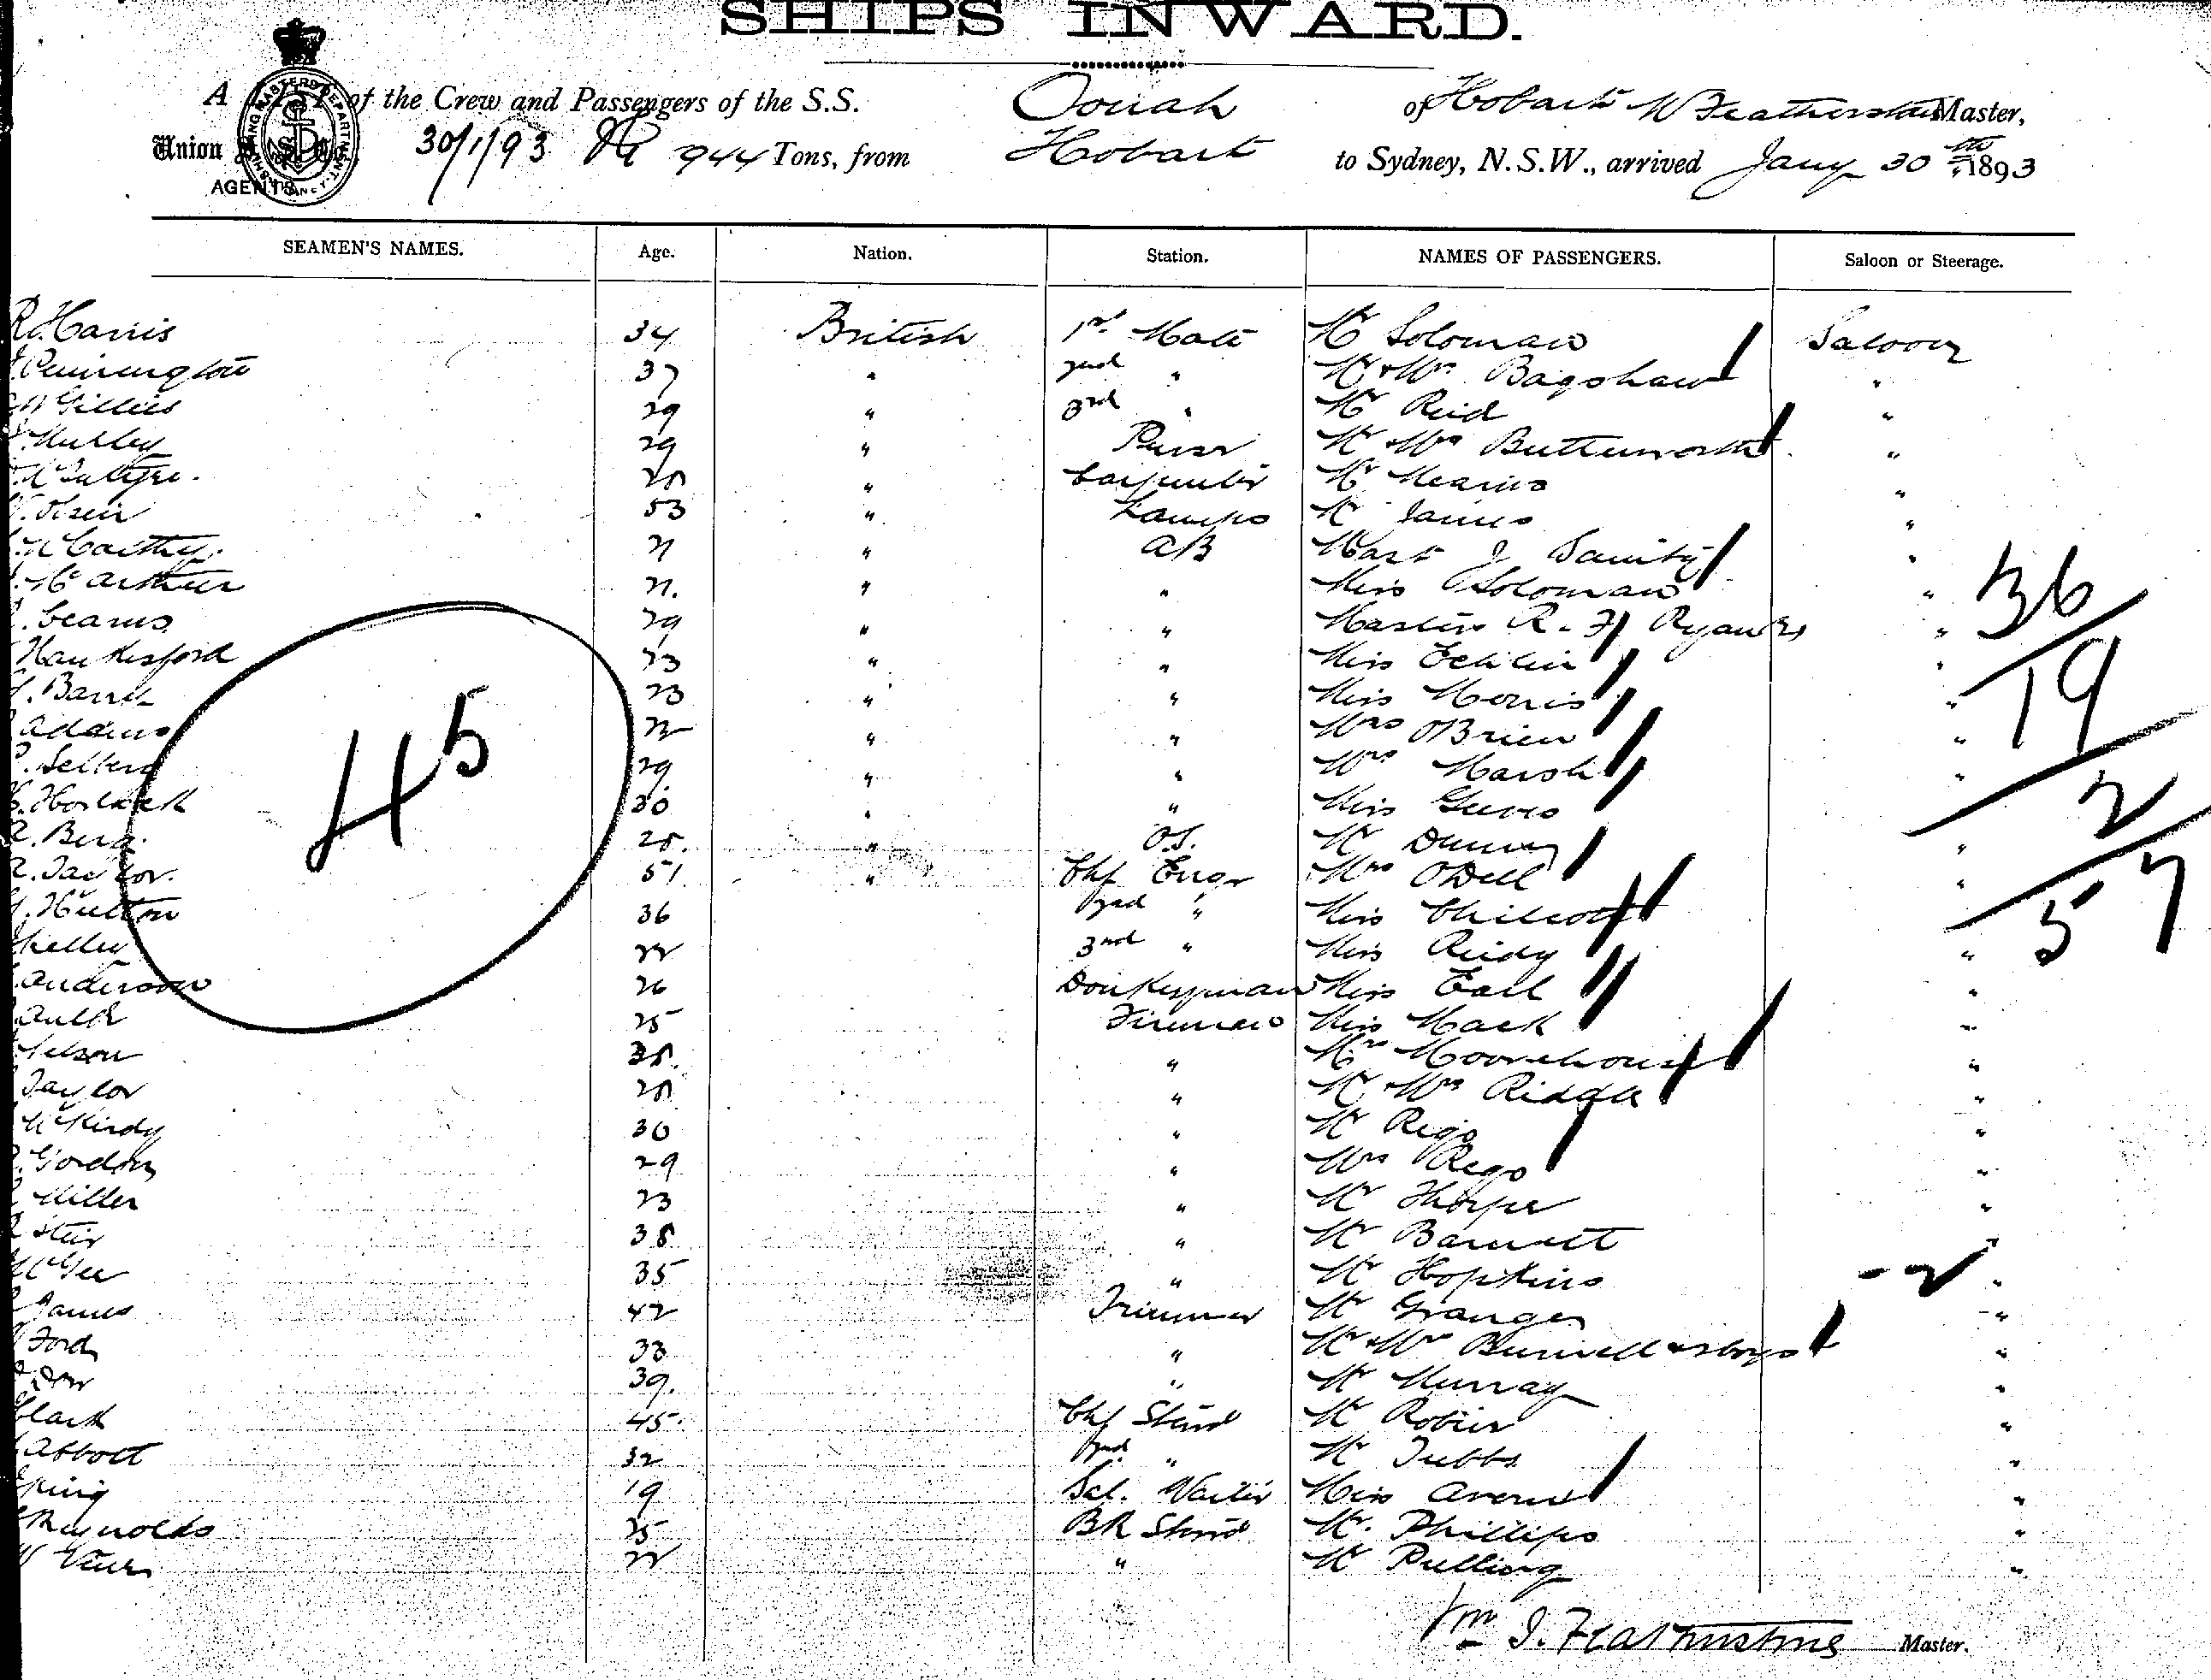 SHIPS INWARD.
A LIST of the Crew and Passengers of the S.S. Oonah of Hobart W Featherstone Master,
Union AGENTS 30/1/93 944 Tons, from Hobart to Sydney, N.S.W., arrived Jany 30th 1893
SEAMEN'S NAMES. Age. Nation. Station. NAMES OF PASSENGERS. Saloon or Steerage.
R. Harris 34 British 1st Mate Mr Soloman Saloon
Pennington 37 " 2nd " Mr & Mrs Bagshaw "
Gillies 29 " 3rd " Mr Reid "
29 " Purser Mr & Mrs Butterworth "
McIntyre. " Carpenter Mr Mearns "
Olsen 53 " Lamps Mr James "
McCarthy. 21 " AB Mast J "
McArthur 21. " " Miss Soloman " 36
Cearns 29 " " Masters R. F Ryan "
Hankesford 23 " " Miss Echlin " 19
Barrett 23 " " Miss Morris "
Adams 22 " " Mrs O'Brien "
Sellers 29 " " Mrs Marsh " 2
45
30 " " Miss Geeves
R. Berg. " O.S. Mr Dunn "
R. Taylor. 51 " Chf Engr Mrs O'Dell " 57
Hutton 36 2nd " Miss Chilcott
Kelley 22 3rd " Miss Reidy "
Anderson 26 Donkeyman Miss Earl "
Ault 25 Fireman Miss Mack "
Nelson " Mrs Moorehouse "
Taylor " Mr & Mrs Riddle "
McKirdy 30 " Mr Rigo "
Gordon 29 " Mrs Rego "
Miller 23 " Mr Thorpe "
38 " Mr Barnett "
McGee 35 " Mr Hopkins - 2 "
James 42 Trimmer Mr Granger "
Ford 33 " Mr & Mrs Burnell & boys "
Dow 39. " Mr Murray "
Clark 45. Chf Steward Mr Robin "
Abbott 32 2nd " Mr Tubbs "
King 19 Sal. Waiter Miss "
Reynolds 25 BR Steward Mr. Phillips "
22 " Mr Pulling "
Wm J. Featherstone Master.